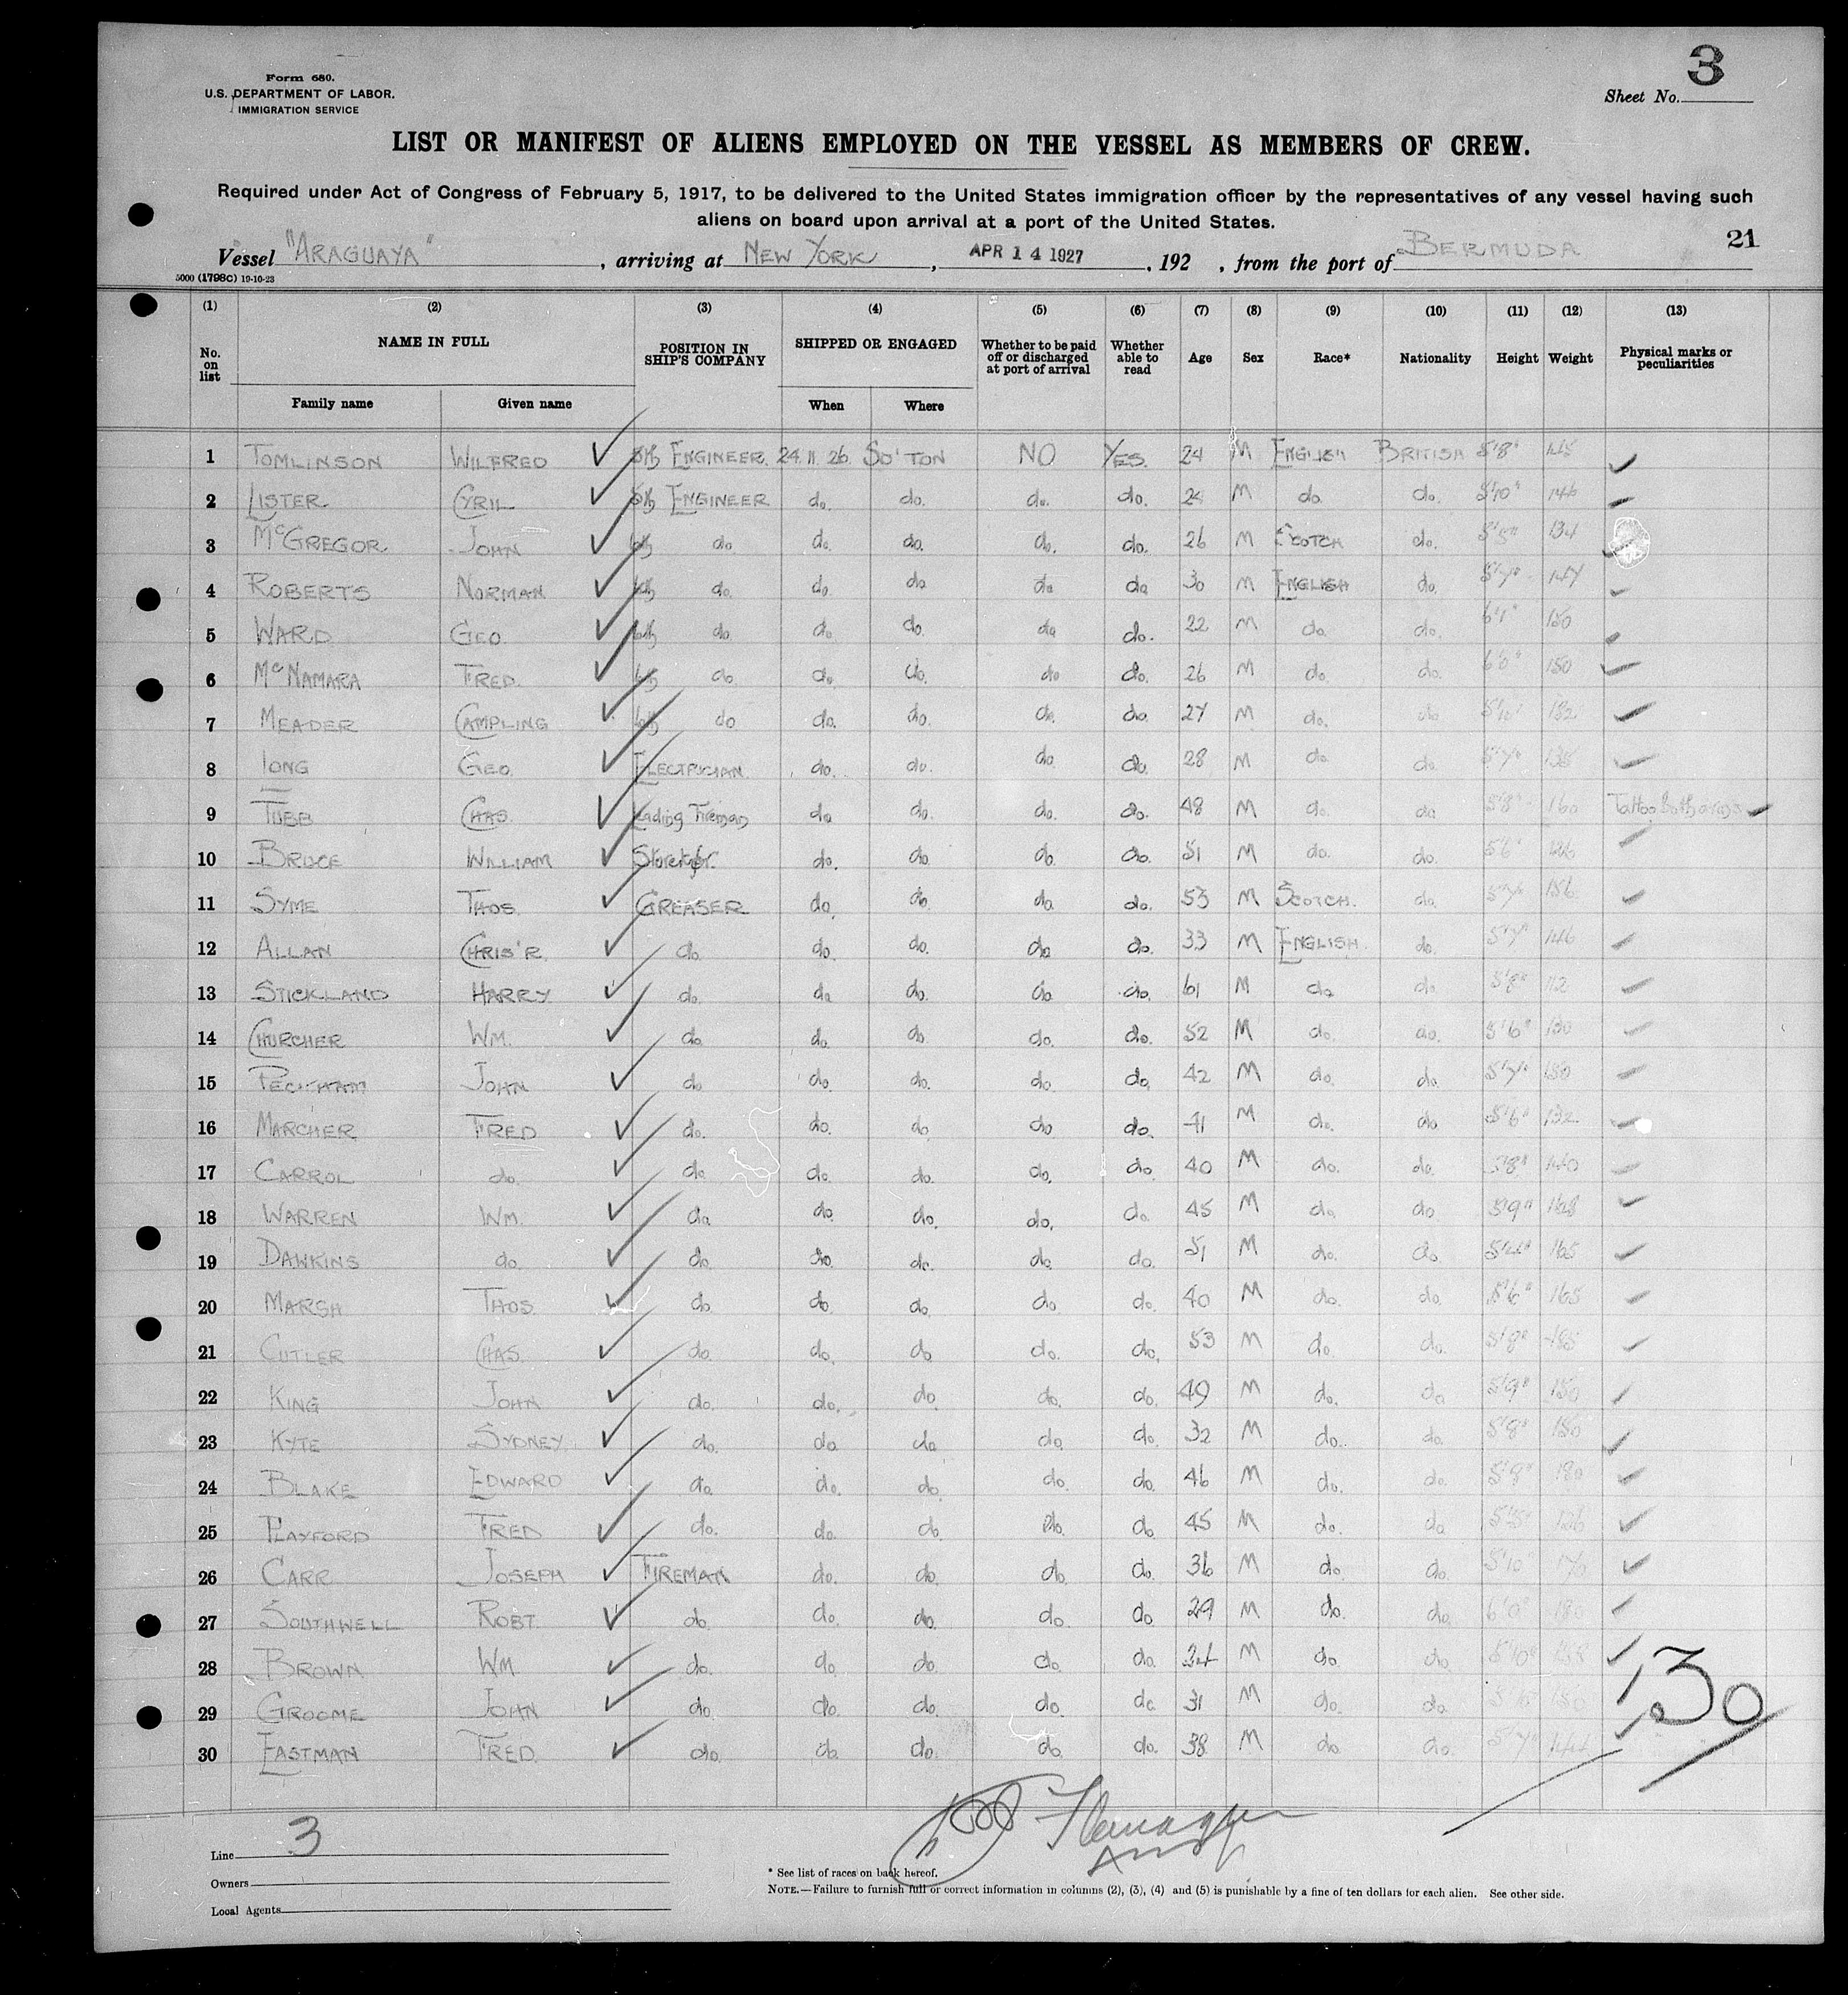 3
Form 680.
U.S. DEPARTMENT OF LABOR.
IMMIGRATION SERVICE
Sheet No.
LIST OR MANIFEST OF ALIENS EMPLOYED ON THE VESSEL AS MEMBERS OF CREW.
Required under Act of Congress of February 5, 1917, to be delivered to the United States immigration officer by the representatives of any vessel having such
aliens on board upon arrival at a port of the United States.
21
Vessel "ARAGUAYA", arriving at NEW YORK, APR 14 1927, 192 , from the port of BERMUDA
5000 (1798C) 19-10-23
(1) (2) (3) (4) (5) (6) (7) (8) (9) (10) (11) (12) (13)
No. on list NAME IN FULL POSITION IN SHIP'S COMPANY SHIPPED OR ENGAGED Whether to be paid off or discharged at port of arrival Whether able to read Age Sex Race* Nationality Height Weight Physical marks or peculiarities
Family name Given name When Where
1 TOMLINSON WILFRED 5th ENGINEER 24.11.26. SO'TON NO YES. 24 M ENGLISH BRITISH 5'8" 145
2 LISTER CYRIL 5th ENGINEER do. do. do. do. 24 M do. do. 5'10" 146
3 McGREGOR JOHN 6th do do. do. do. do. 26 M SCOTCH do. 5'5" 134
4 ROBERTS NORMAN 6th do. do. do do do 30 M ENGLISH do. 5'7" 147
5 WARD GEO. 6th do do. do. do do. 22 M do do. 6'1" 150
6 McNAMARA FRED. 6th do do. do. do do. 26 M do. do. 6'0" 150
7 MEADER CAMPLING 6th do do. do. do. do. 27 M do. do 5'10" 132
8 GEO. ELECTRICIAN do. do. do. do. 28 M do. do. 5'7" 135
9 TUBB CHAS. Leading Fireman do do. do. do. 48 M do. do 5'8" 160 Tattoo both arms
10 BRUCE WILLIAM Storekpr. do. do. do. do. 51 M do. do. 5'6" 126
11 SYME THOS. GREASER do. do. do. do. 53 M SCOTCH. do. 5'7" 156
12 ALLAN CHRIS'R. do. do. do. do do. 33 M ENGLISH. do. 5'7" 146
13 STICKLAND HARRY. do. do do. do do. 61 M do do. 5'8" 112
14 CHURCHER WM. do. do. do. do. do. 52 M do. do. 5'6" 130
15 PECKHAM JOHN do do. do. do. do. 42 M do. do. 5'7" 150
16 MARCHER FRED do. do. do do do. 41 M do. do 5'6" 132
17 CARROL do. do. do. do. do. do. 40 M do. do. 5'8" 140
18 WARREN WM. do do. do. do. do 45 M do do 5'9" 168
19 DAWKINS do. do. do. do. do. do. 51 M do. do 5'4" 165
20 MARSH THOS. do. do. do. do. do. 40 M do. do. 5'6" 165
21 CUTLER CHAS. do. do. do do. do. 53 M do. do. 5'8"
22 KING JOHN do. do. do do. do. 49 M do. do 5'9" 150
23 KYTE SYDNEY do. do do do do. 32 M do. do. 5'8" 150
24 BLAKE EDWARD do. do. do. do. do. 46 M do. do. 5'8" 180
25 PLAYFORD FRED do. do. do. do. do. 45 M do. do 5'5" 126
26 CARR JOSEPH FIREMAN do. do. do. do. 36 M do. do. 5'10" 170
27 SOUTHWELL ROBT. do. do. do. do. do 29 M do. do. 6'0" 180
28 BROWN WM. do. do. do. do. do. 34 M do. do. 5'10" 158
29 GROOME JOHN do. do. do. do. do 31 M do. do. 150
30 EASTMAN FRED. do. do. do. do. do. 38 M do do. 5'7" 144
30
3
Line
Owners
Local Agents
* See list of races on back hereof.
NOTE.—Failure to furnish full or correct information in columns (2), (3), (4) and (5) is punishable by a fine of ten dollars for each alien. See other side.